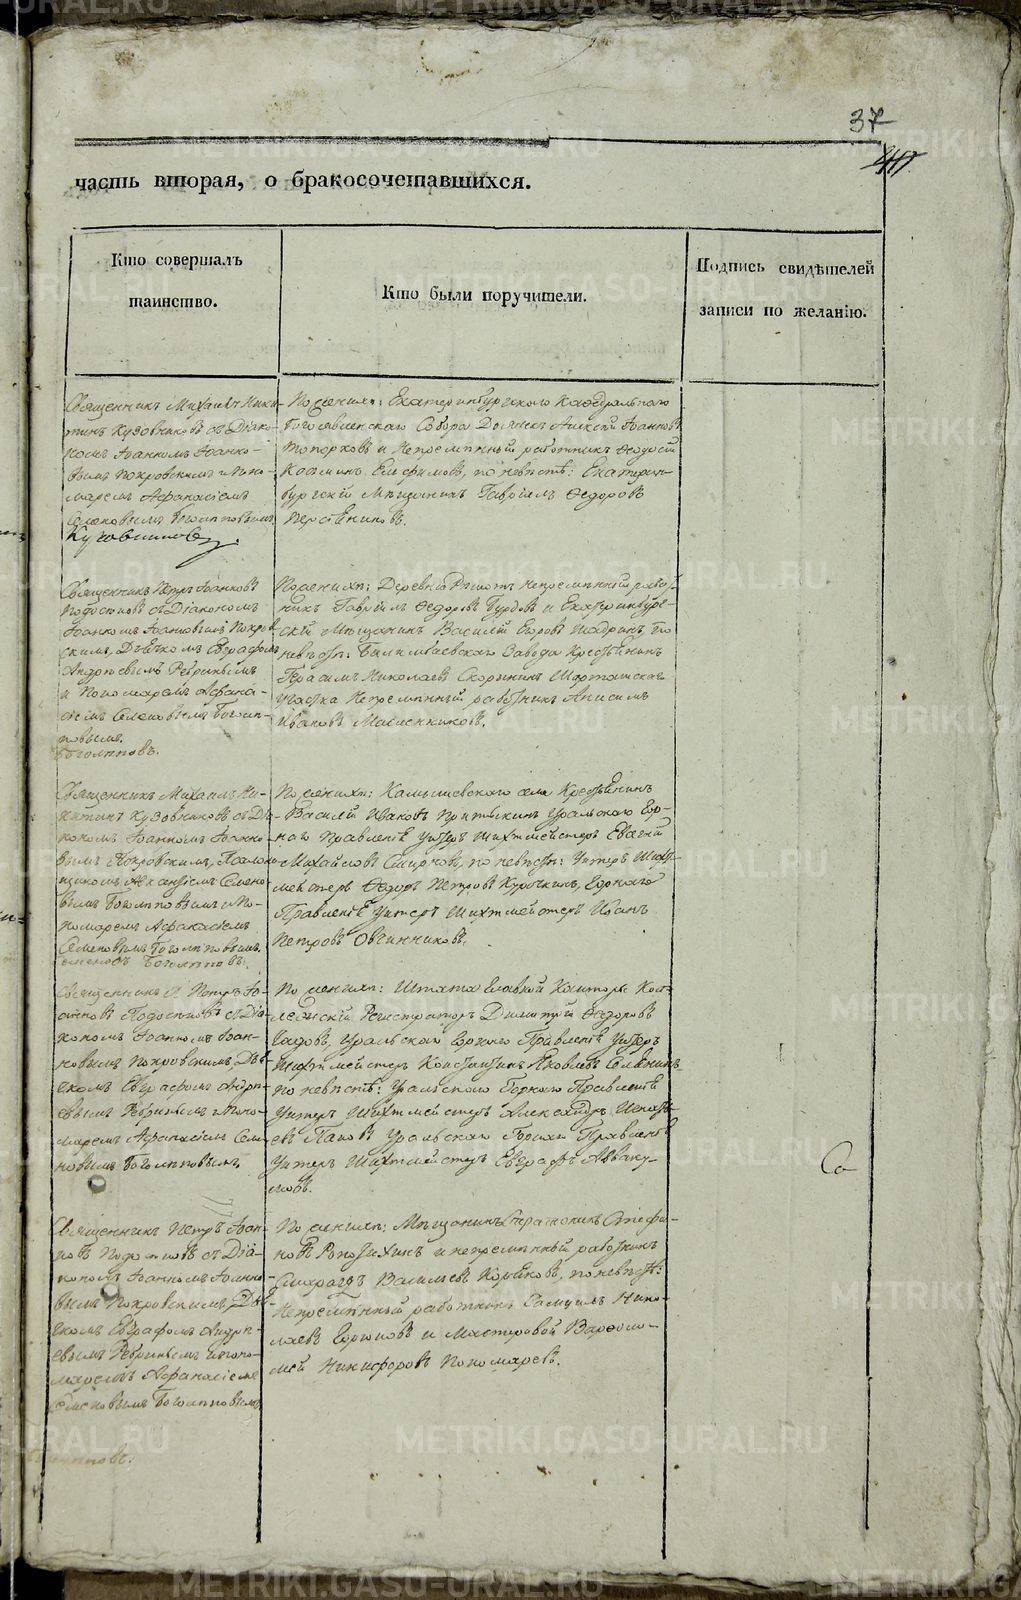 37
часть вторая, о бракосочетавшихся.
Кто совершалъ
таинство.
Кто были поручители.
Подпись свидѣтелей
записи по желанію.
Священникъ Михаилъ Ники-
тинъ Кузовниковъ съ Діако-
номъ Іоанномъ Іоанно-
вымъ Покровскимъ и Поно-
маремъ Афанасіемъ
Семеновымъ Боголѣповымъ
Кузовниковъ.
По женихѣ: Екатеринбургскаго Каѳедральнаго
Богоявленскаго Собора Діячекъ Алексѣй Іоанновъ
Топорковъ и Непремѣнный работникъ Ѳедосѣй
Косминъ Ельфимовъ, по невѣстѣ: Екатерин-
бургскій Мѣщанинъ Гавріилъ Ѳедоровъ
Священникъ Петръ Іоанновъ
съ Діакономъ
Іоанномъ Іоановымъ Покров-
скимъ, Дьячкомъ Евграфомъ
Андреевымъ Ребринымъ
и Пономаремъ Афана-
сіемъ Семеновымъ Боголѣ-
повымъ.
Боголѣповъ.
По женихѣ: Деревни Рѣшотъ Непремѣнный работ-
никъ Гавріилъ Ѳедоровъ и Екатеринбург-
скій Мѣщанинъ Василій Егоровъ Шадринъ, по
невѣстѣ: Билимбаевскаго Завода Крестьянинъ
Герасимъ Николаевъ Скорынинъ Шарташскаго
участка Непремѣнный работникъ Анисимъ
Ивановъ Масленниковъ.
Священникъ Михаилъ Ни-
китинъ Кузовниковъ съ Ді-
кономъ Іоанномъ Іоанно-
вымъ Покровскимъ, Псаломъ-
щикомъ Семено-
вымъ Боголѣповымъ и По-
номаремъ Афанасіемъ
Семеновымъ Боголѣповымъ.
Семеновъ Боголѣповъ.
По женихѣ: Камышевскаго села Крестьянинъ
Василій Ивановъ Уральскаго Гор-
наго Правленія Унтеръ Шихтмейстеръ Евгеній
Михайловъ Смирновъ, по невѣстѣ: Унтеръ Шихт-
мейстеръ Ѳедоръ Петровъ Курочкинъ, Горнаго
Правленія Унтеръ Шихтмейстеръ Иванъ
Петровъ Овчинниковъ.
Священникъ Петръ Іо-
анновъ съ Діа-
кономъ Іоанномъ Іоан-
новымъ Покровскимъ, Дья-
комъ Евграфомъ Андре-
евымъ Ребринымъ и Поно-
маремъ Афанасіемъ Семе-
новымъ Боголѣповымъ.
По женихѣ: Штата Главной Конторы Кол-
лежскій Регистраторъ Димитрій Ѳедоровъ
Уральскаго Горнаго Правленія Унтеръ
Шихтмейстеръ Константинъ Яковлевъ
по невѣстѣ: Уральскаго Горнаго Правленія
Унтеръ Шихтмейстеръ Александръ
Уральскаго Горнаго Правленія
Унтеръ Шихтмейстеръ Евграфъ Авваку-
мовъ.
Священникъ Петръ Іоан-
новъ съ Діа-
кономъ Іоанномъ Іоанно-
вымъ Покровскимъ, Дья-
комъ Евграфомъ Андре-
евымъ Ребринымъ и поно-
маремъ Афанасіемъ
Семеновымъ Боголѣповымъ
По женихѣ: Мѣщанинъ Стефа-
новъ и непремѣнный работникъ
Смарагдъ Васильевъ по невѣстѣ:
Непремѣнный работникъ Самуилъ Нико-
лаевъ и Мастеровой Варѳоло-
мей Никифоровъ Пономаревъ.
METRIKI.GASO-URAL.RU